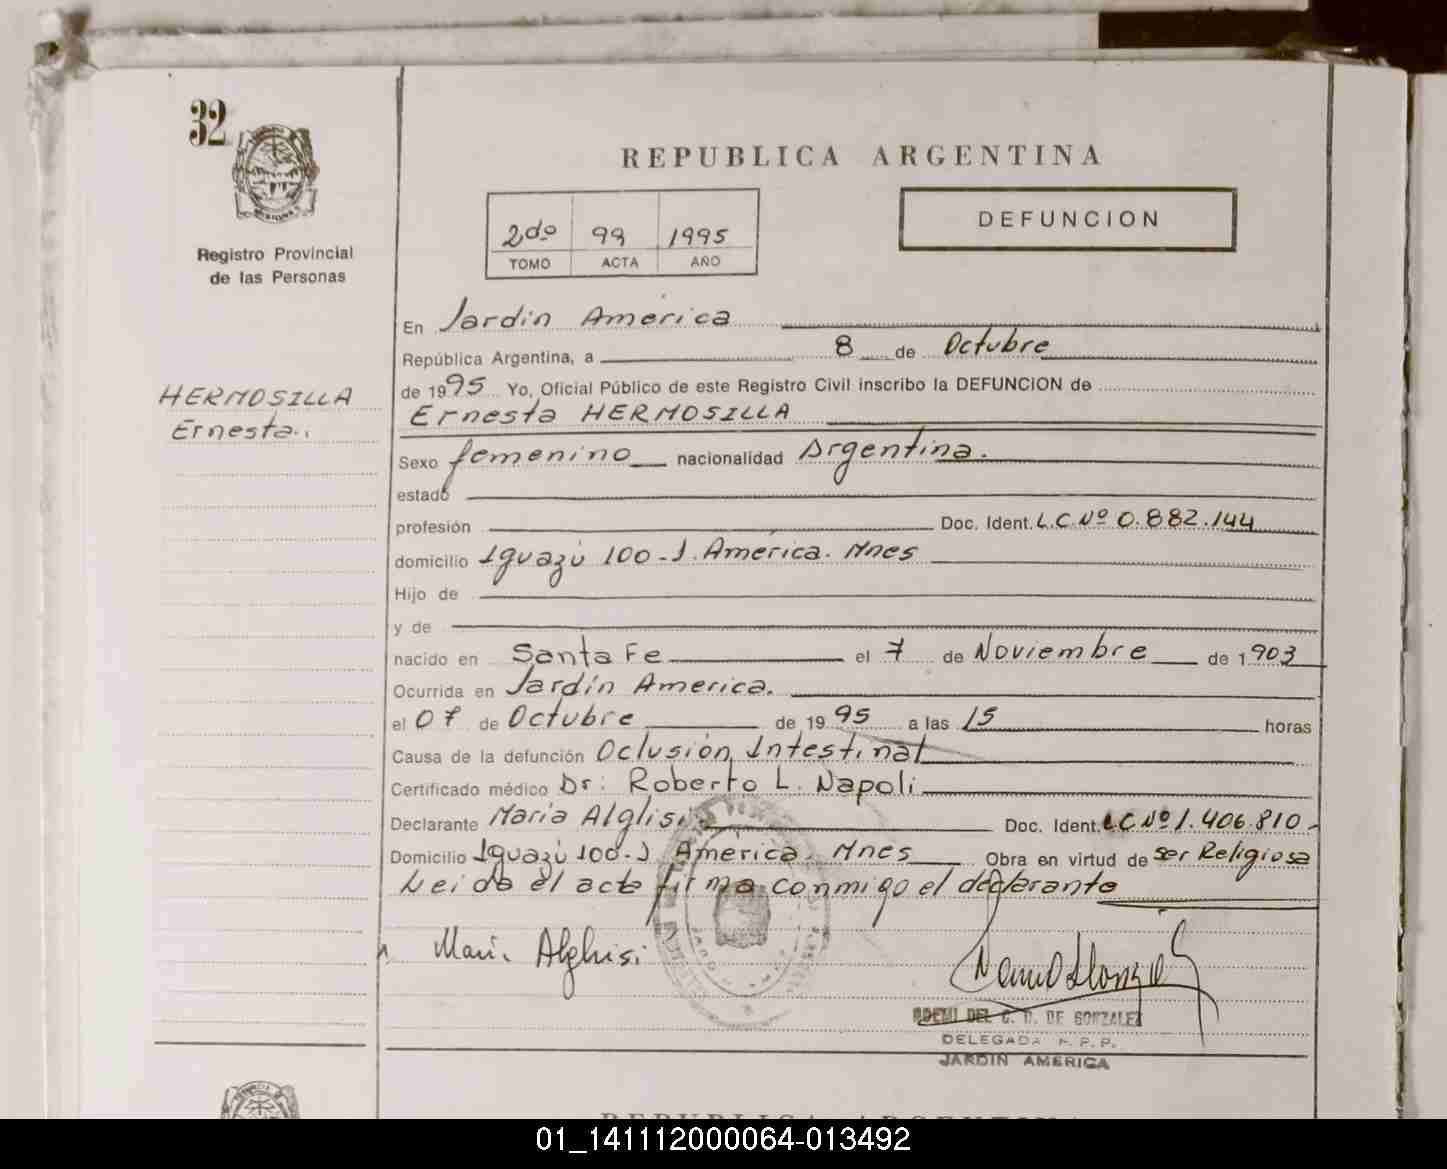 32
Registro Provincial
de las Personas
HERMOSILLA
Ernesta.
REPUBLICA ARGENTINA
2do 99 1995
TOMO ACTA AÑO
DEFUNCION
En Jardín América
República Argentina, a 8 de Octubre
de 1995 Yo, Oficial Público de este Registro Civil inscribo la DEFUNCION de
Ernesta HERMOSILLA
Sexo femenino nacionalidad Argentina.
estado
profesión Doc. Ident. L.C.Nº 0.882.144
domicilio Iguazú 100-J. América. Mnes
Hijo de
y de
nacido en Santa Fe el 7 de Noviembre de 1903
Ocurrida en Jardín America.
el 07 de Octubre de 1995 a las 15 horas
Causa de la defunción Oclusión Intestinal
Certificado médico Dr: Roberto L. Napoli
Declarante María Alglisi Doc. Ident. LC Nº 1.406.810-
Domicilio Iguazú 100-J. América. Mnes Obra en virtud de ser Religiosa
Leida el acta firma conmigo el declarante
Maria Alghisi
DEL C. D. DE GONZALEZ
DELEGADA R.P.P.
JARDIN AMERICA
REPUBLICA ARGENTINA
01_141112000064-013492